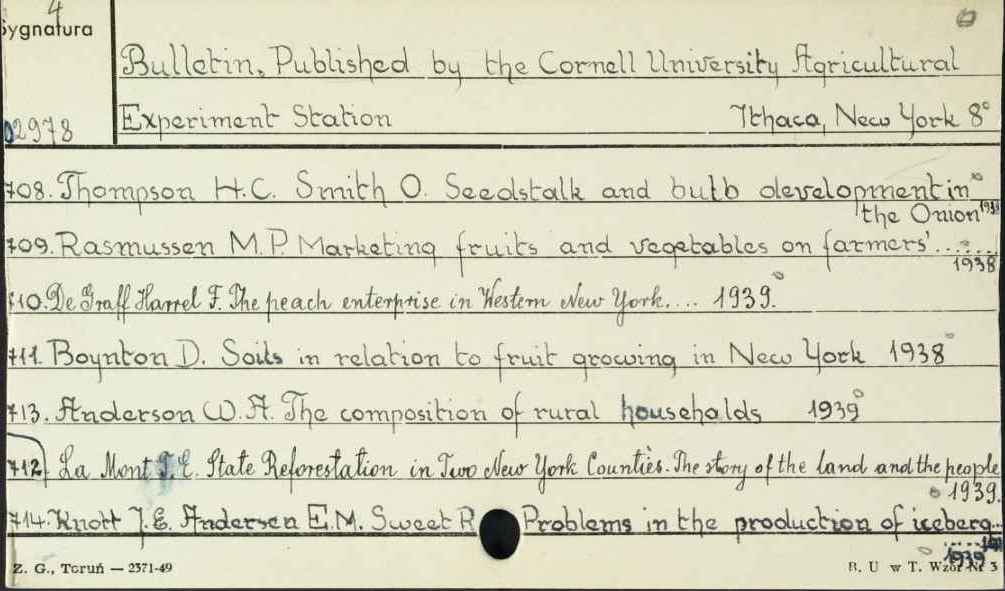 4
Sygnatura
Bulletin, Published by the Cornell University Agricultural
02978
Experiment Station Ithaca, New York 8°
708. Thompson H.C. Smith O. Seedstalk and bulb development in
the Onion 1938
709. Rasmussen M.P. Marketing fruits and vegetables on farmers'.......
1938
710. De Graff Harrel F. The peach enterprise in Western New York.... 1939.
711. Boynton D. Soils in relation to fruit growing in New York 1938
713. Anderson W.A. The composition of rural households 1939
712) La Mont T.E. State Reforestation in Two New York Counties. The story of the land and the people
1939
714. Knott J.E. Andersen E.M. Sweet R Problems in the production of iceberg..
1939
Z. G., Toruń — 2371-49 B. U w T. Wzór Nr 3